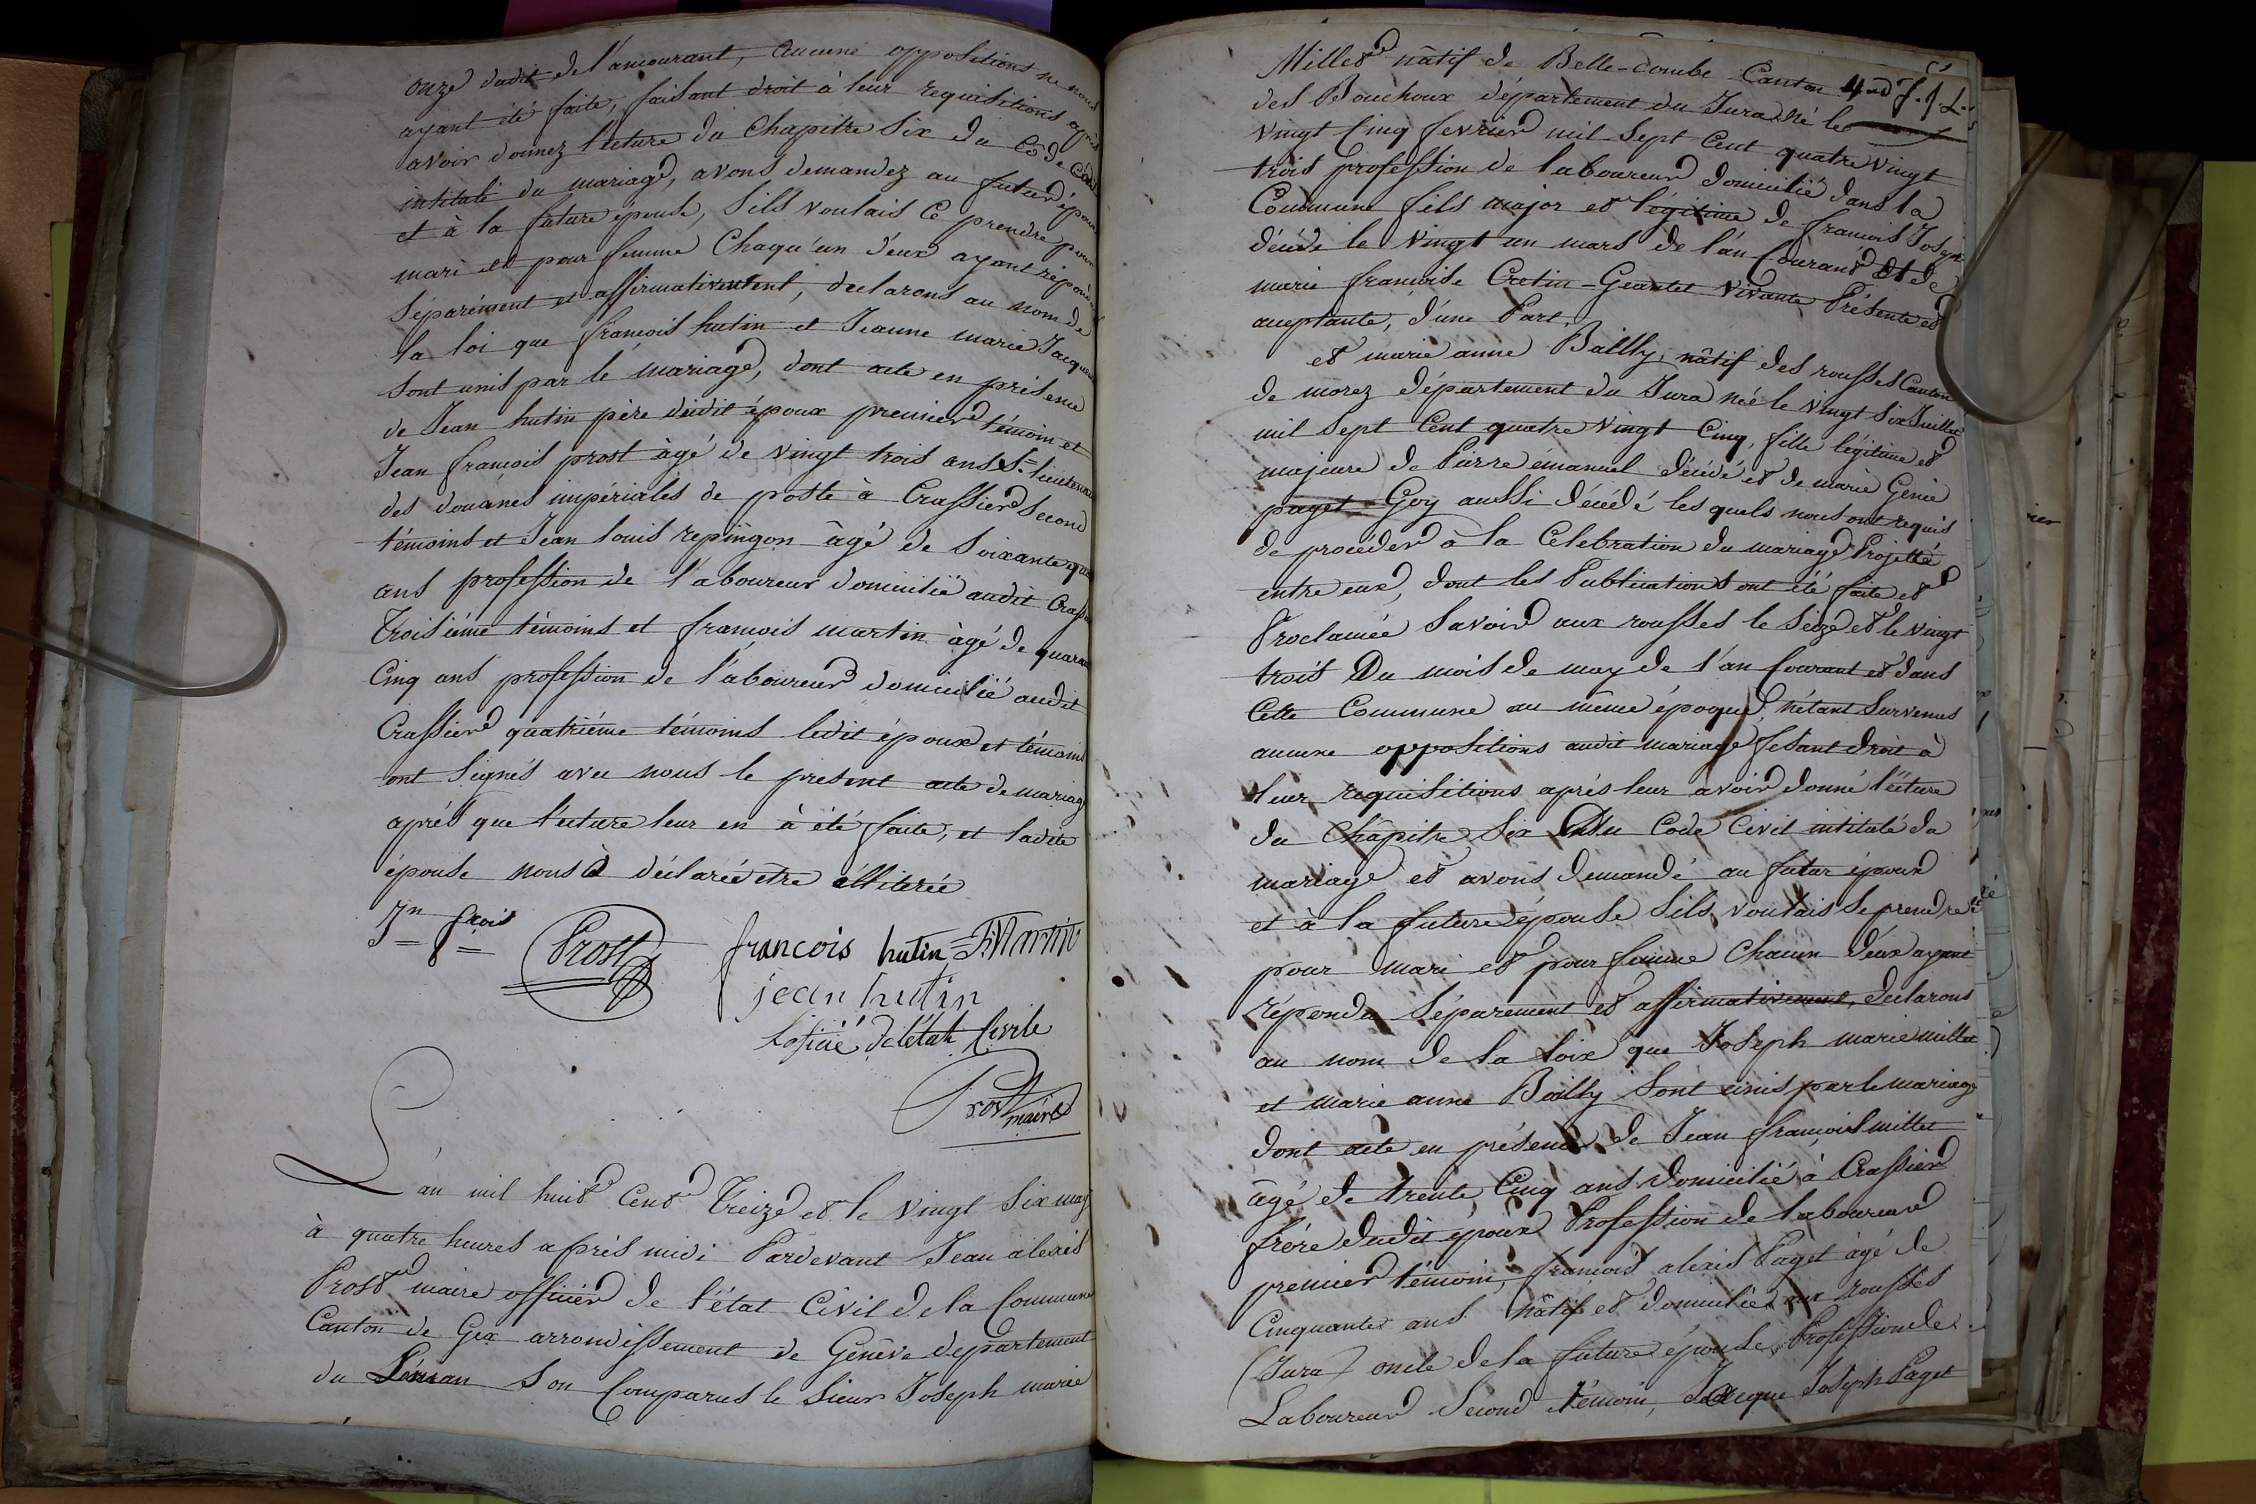 onze dudit de l'ancourant, aucune oppositions ne nous
ayant été faite, faisant droit à leur requisitions après
avoir donnez lecture du Chapitre Six du Code Civil
intitulé du mariage, avons demandez au futur époux
et à la future épouse, Sils voulais Ce prendre pour
mari et pour femme Chaqu'un d'eux ayant répondu
Séparément et affirmativement, declarons au nom de
la loi que francois hutin et Jeanne marie Jacquin
sont unis par le mariage, dont acte en présence
de Jean hutin père dudit époux premier témoin et
Jean francois prost âgé de vingt trois ans S.= lieutenant
des douanes impériales de poste à Crassier Second
témoins et Jean louis repingon âgé de Soixante
ans profession de l'aboureur domicilié audit Crassier
Troisiéme témoins et francois martin âgé de quarante
Cinq ans profession de l'aboureur domicilié audit
Crassier quatriéme témoins ledit époux et témoins
ont Signés avec nous le present acte de mariage
aprés que lecture leur en à été faite, et ladite
épouse nous à déclarée etre illiterée
Jn fçois Prost francois hutin = F. Martin
jean hutin
lofficié de létat Civile
Prost maire
L'an mil huit Cent Treize et le vingt Six may
à quatre heures aprés midi Pardevant Jean alexis
Prost maire officier de l'état Civil de la Commune
Canton de Gex arrondissement de Genêve département
du Léman Son Comparus le Sieur Joseph marie
Millet nâtif de Belle-Combe Canton
des Bouchoux département du Jura né le
vingt Cinq fevrier mil Sept Cent quatre vingt
trois profession de laboureur domicilié dans la
Commune fils major et légitime de francois Joseph
décédé le vingt un mars de l'an Courant et de
marie francoise Cretin-Geantet vivante Présente et
aceptante, d'une Part.
et marie anne Bailly, nâtif des rousses Canton
de morez département du Jura née le vingt Six Juillet
mil Sept Cent quatre vingt Cinq, fille légitime et
majeure de Pierre émanuel décédé et de marie Génie
paget Goy aussi décédé les quels nous ont requis
de procéder à la Celebration du mariage Projetté
entre eux, dont les Publications ont été faite et
Proclamée Savoir aux rousses le Seize et le vingt
trois Du mois de may de l'an Courant et dans
Cette Commune au même époque, n'étant Survenus
aucune oppositions audit mariage fesant droit à
leur requisitions aprés leur avoir donné lécture
du Châpitre Six Du Code Civil intitulé du
mariage et avons demandé au futur époux
et à la future épouse Sils voulais Se prendre
pour mari et pour femme Chacun d'eux ayant
répondu Séparement et affirmativement, declarons
au nom de la loix que Joseph marie millet
et marie anne Bailly Sont unis par le mariage
dont acte en présence de Jean francois millet
âgé de trente Cinq ans domicilié à Crassier
frère dudit époux Profession de laboureur
premier témoin, francois alexis Paget âgé de
Cinquante ans nâtif et domicilié aux rousses
(Jura) oncle de la future épouse, Profession de
Laboureur Second témoin, Jacque Joseph Paget